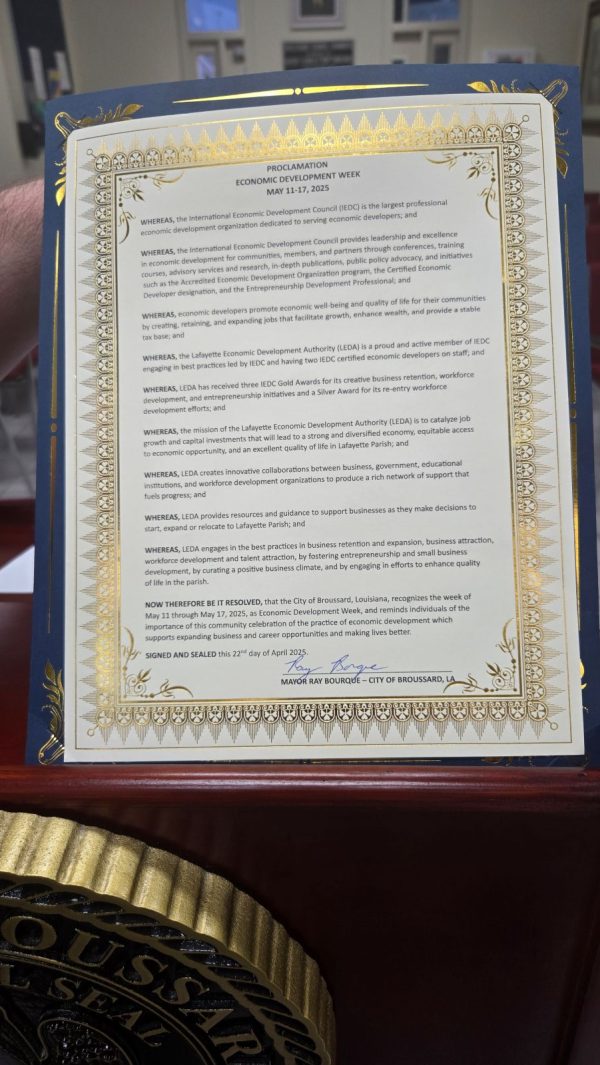 PROCLAMATION
ECONOMIC DEVELOPMENT WEEK
MAY 11-17, 2025
WHEREAS, the International Economic Development Council (IEDC) is the largest professional
economic development organization dedicated to serving economic developers; and
WHEREAS, the International Economic Development Council provides leadership and excellence
in economic development for communities, members, and partners through conferences, training
courses, advisory services and research, in-depth publications, public policy advocacy, and initiatives
such as the Accredited Economic Development Organization program, the Certified Economic
Developer designation, and the Entrepreneurship Development Professional; and
WHEREAS, economic developers promote economic well-being and quality of life for their communities
by creating, retaining, and expanding jobs that facilitate growth, enhance wealth, and provide a stable
tax base; and
WHEREAS, the Lafayette Economic Development Authority (LEDA) is a proud and active member of IEDC
engaging in best practices led by IEDC and having two IEDC certified economic developers on staff; and
WHEREAS, LEDA has received three IEDC Gold Awards for its creative business retention, workforce
development, and entrepreneurship initiatives and a Silver Award for its re-entry workforce
development efforts; and
WHEREAS, the mission of the Lafayette Economic Development Authority (LEDA) is to catalyze job
growth and capital investments that will lead to a strong and diversified economy, equitable access
to economic opportunity, and an excellent quality of life in Lafayette Parish; and
WHEREAS, LEDA creates innovative collaborations between business, government, educational
institutions, and workforce development organizations to produce a rich network of support that
fuels progress; and
WHEREAS, LEDA provides resources and guidance to support businesses as they make decisions to
start, expand or relocate to Lafayette Parish; and
WHEREAS, LEDA engages in the best practices in business retention and expansion, business attraction,
workforce development and talent attraction, by fostering entrepreneurship and small business
development, by curating a positive business climate, and by engaging in efforts to enhance quality
of life in the parish.
NOW THEREFORE BE IT RESOLVED, that the City of Broussard, Louisiana, recognizes the week of
May 11 through May 17, 2025, as Economic Development Week, and reminds individuals of the
importance of this community celebration of the practice of economic development which
supports expanding business and career opportunities and making lives better.
SIGNED AND SEALED this 22nd day of April 2025.
Ray Bourque
MAYOR RAY BOURQUE – CITY OF BROUSSARD, LA
OUSSAR
SEAL